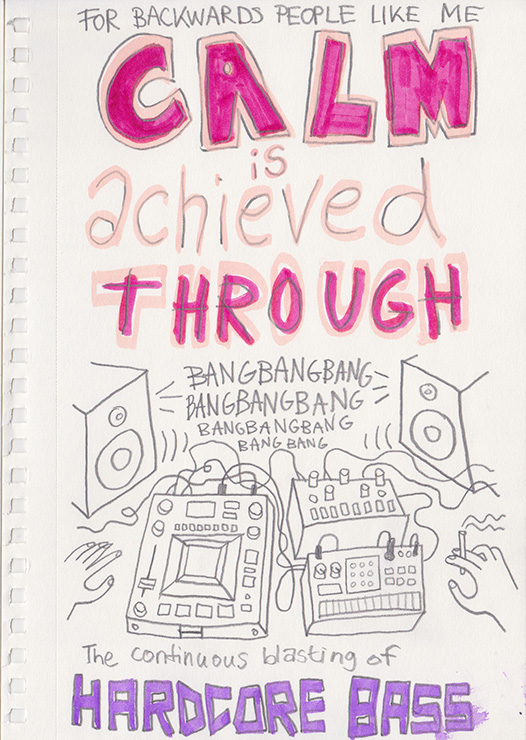 FOR BACKWARDS PEOPLE LIKE ME
CALM
is
achieved
THROUGH
BANGBANGBANG
BANGBANGBANG
BANGBANGBANG
BANG BANG
The continuous blasting of
HARDCORE BASS